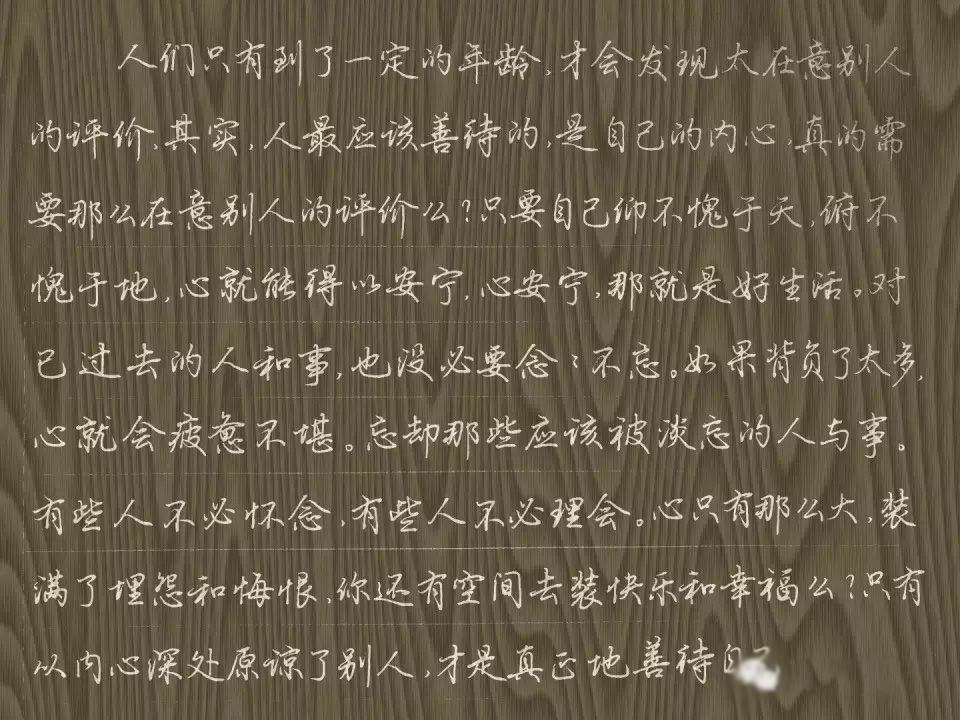 人们只有到了一定的年龄,才会发现太在意别人
的评价,其实,人最应该善待的,是自己的内心,真的需
要那么在意别人的评价么?只要自己仰不愧于天,俯不
愧于地,心就能得以安宁,心安宁,那就是好生活。对
已过去的人和事,也没必要念念不忘。如果背负了太多,
心就会疲惫不堪。忘却那些应该被淡忘的人与事。
有些人不必怀念,有些人不必理会。心只有那么大,装
满了埋怨和悔恨,你还有空间去装快乐和幸福么?只有
从内心深处原谅了别人,才是真正地善待自